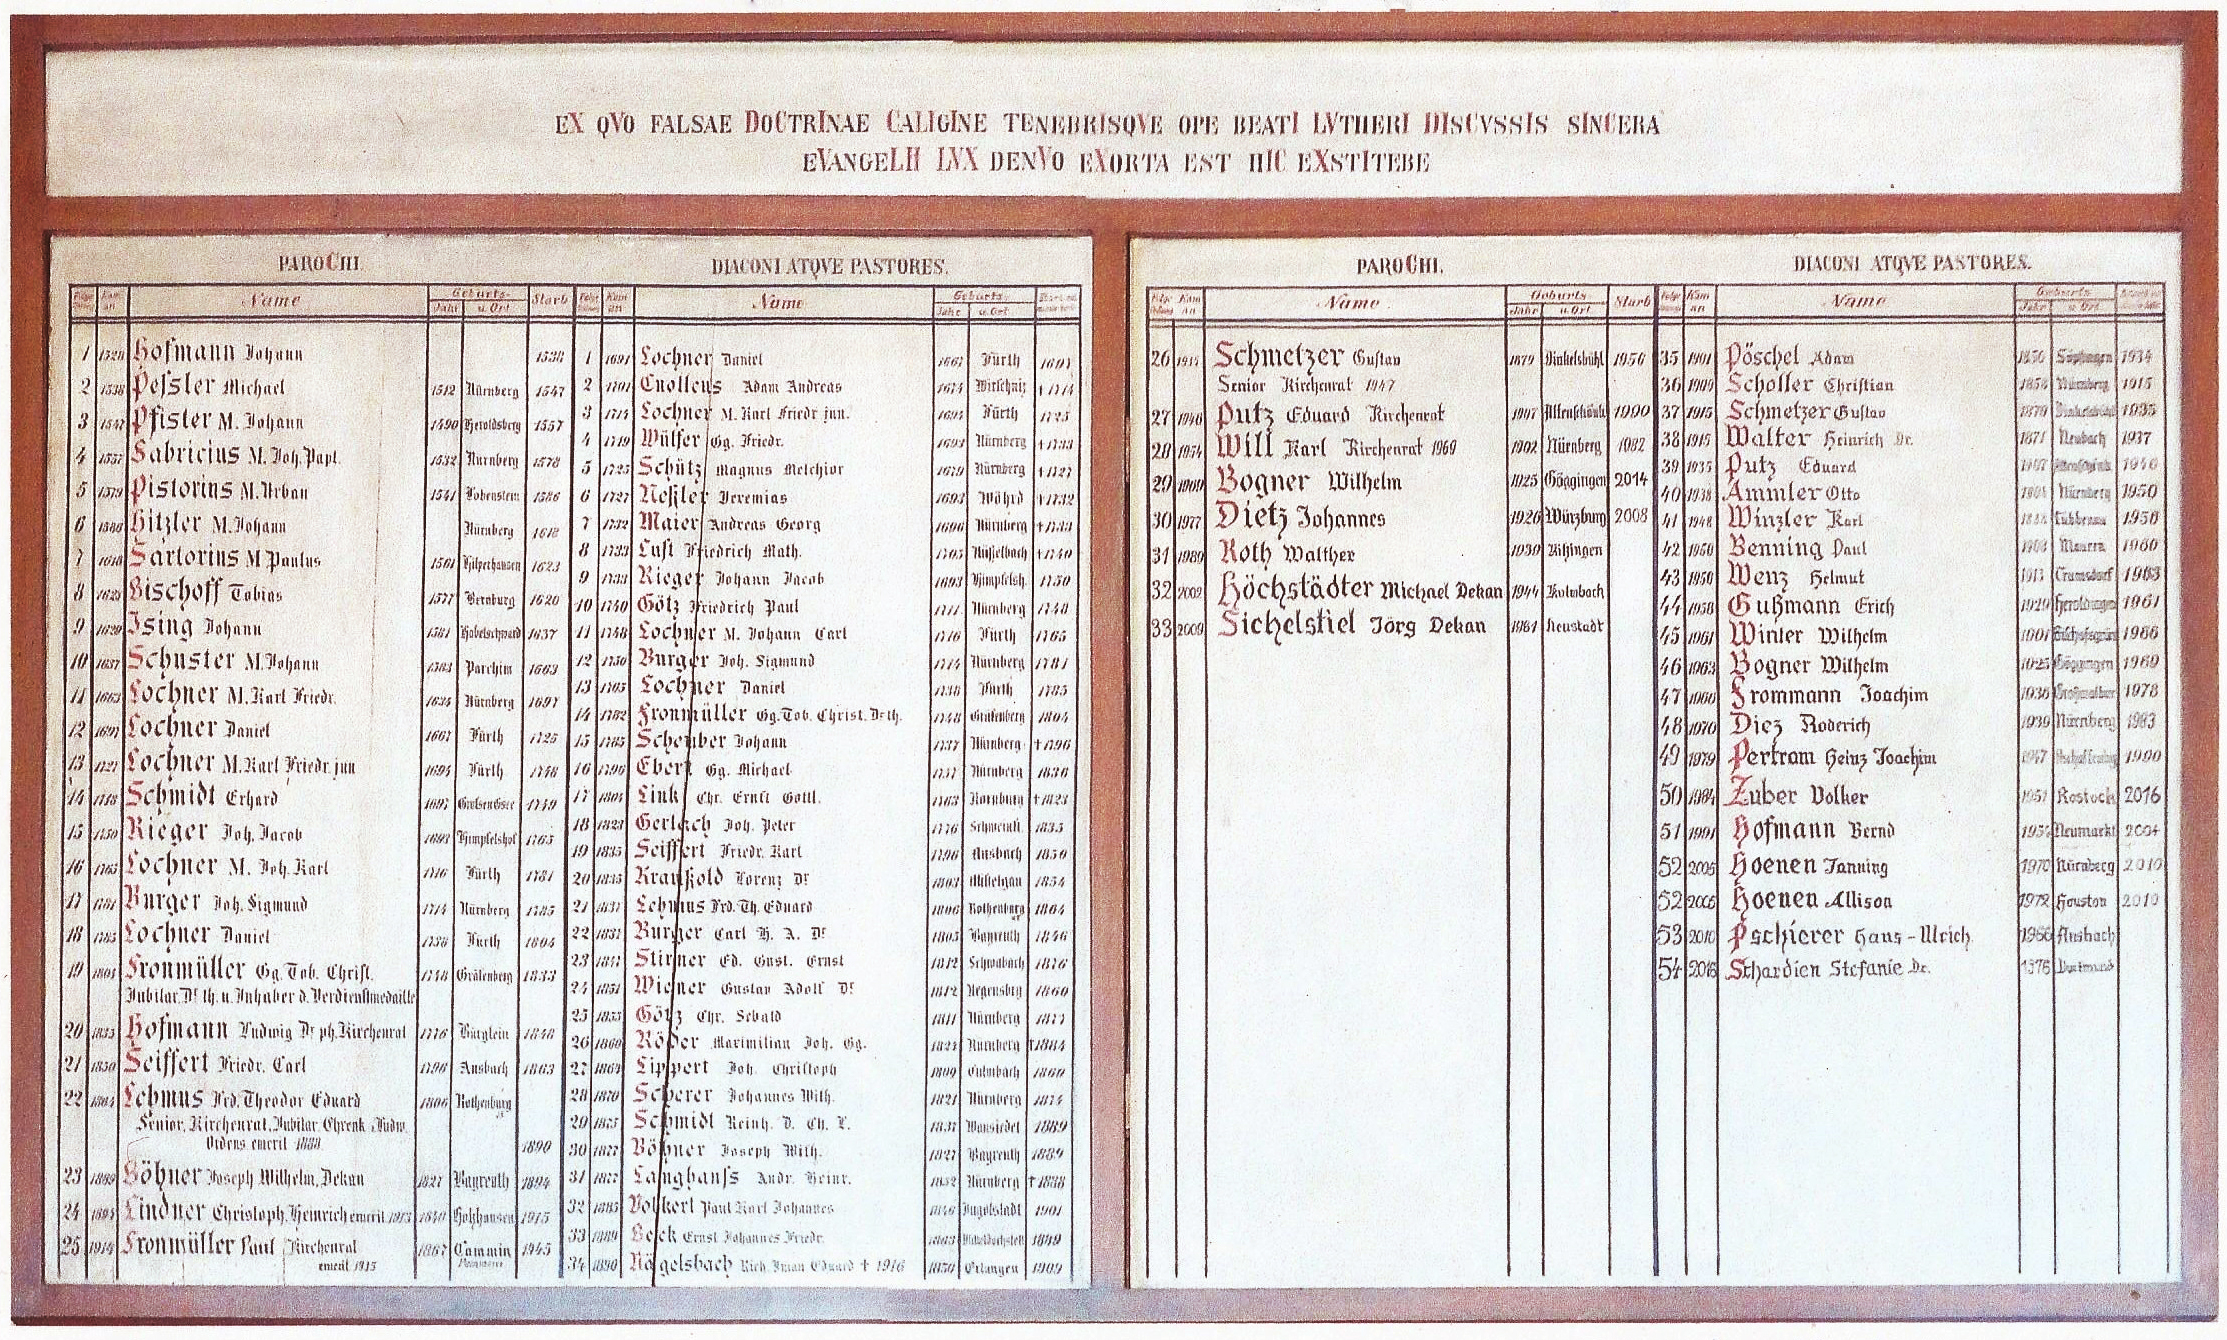 EX QVO FALSAE DOCTRINAE CALIGINE TENEBRISQVE OPE BEATI LVTHERI DISCVSSIS SINCERA
EVANGELII LVX DENVO EXORTA EST HIC EXSTITERE
PAROCHI.
Name Geburts- Jahr u. Ort Starb
1 1528 Hofmann Johann 1538
2 1538 Peſsler Michael 1512 Nürnberg 1547
3 1547 Pfister M. Johann 1490 Heroldsberg 1557
4 1557 M. Joh. 1532 Nurnberg 1578
5 1579 Pistorius M. Urban 1541 Lobenstein 1586
6 1586 Hitzler M. Johann Nürnberg 1618
7 1618 Sartorius M Paulus 1623
8 1623 Bischoff Tobias 1577 Bernburg 1629
9 1629 Ising Johann 1581 Habelschward 1637
10 1637 Schuster M. Johann Parchim 1663
11 1663 Lochner M. Karl Friedr. 1634 Nürnberg 1697
12 1697 Lochner Daniel 1667 Fürth 1725
13 1727 Lochner M. Karl Friedr. jun 1694 Fürth 1748
14 1748 Schmidt Erhard 1697 1749
15 1750 Rieger Joh. Jacob 1693 Himpfelshof 1765
16 1765 Lochner M. Joh. Karl 1716 Fürth 1781
17 1781 Burger Joh. Sigmund 1714 Nürnberg 1785
18 1785 Lochner Daniel 1738 Fürth 1804
19 1804 Fronmüller Gg. Tob. Christ. 1748 Gräfenberg 1833
Jubilar. Dr. th. u. Inhaber d. Verdienstmedaille
20 1833 Hofmann Ludwig Dr. ph. Kirchenrat 1776 Bürglein 1848
21 1850 Seiffert Friedr. Carl 1796 Ansbach 1863
22 1864 Lehmus Frd. Theodor Eduard 1806 Rothenburg
Senior, Kirchenrat, Jubilar, Ehrenk. Ludw.
Ordens, emerit 1888 1890
23 1889 Böhner Joseph Wilhelm, Dekan 1827 Bayreuth 1894
24 1894 Lindner Christoph, Heinrich emerit. 1913 1840 Holzhausen 1915
25 1914 Fronmüller Paul Kirchenrat 1867 Cammin 1945
emerit 1915 Pommern
DIACONI ATQVE PASTORES.
Name Geburts- Jahr u. Ort
1 1691 Lochner Daniel 1667 Fürth 1697
2 1701 Cnolleus Adam Andreas 1674 †1714
3 1714 Lochner M. Karl Friedr. jun. 1694 Fürth 1725
4 1719 Wülfer Gg. Friedr. 1693 Nürnberg †1733
5 1725 Schütz Magnus Melchior 1679 Nürnberg †1727
6 1727 Neßler Jeremias 1693 Wöhrd †1732
7 1732 Maier Andreas Georg 1696 Nürnberg †1733
8 1733 Lust Friedrich Math. 1705 †1740
9 1733 Rieger Johann Jacob 1693 Himpfelsh. 1750
10 1740 Götz Friedrich Paul Nürnberg 1748
11 1748 Lochner M. Johann Carl 1716 Fürth 1765
12 1750 Burger Joh. Sigmund 1714 Nürnberg 1781
13 1765 Lochner Daniel 1738 Fürth 1785
14 1782 Fronmüller Gg. Tob. Christ. Dr. th. 1748 Gräfenberg 1804
15 1785 Schember Johann 1757 Nürnberg †1796
16 1796 Ebert Gg. Michael 1757 Nürnberg 1836
17 1804 Link Chr. Ernst Gottl. 1763 †1823
18 1823 Gerlach Joh. Peter 1776 1835
19 1835 Seiffert Friedr. Karl 1796 Ansbach 1850
20 1835 Kraußold Lorenz Dr. 1803 Mistelgau 1854
21 1837 Lehmus Frd. Th. Eduard 1806 Rothenburg 1864
22 1837 Burger Carl H. A. Dr. 1805 Bayreuth 1846
23 1847 Stirner Ed. Gust. Ernst 1812 Schwabach 1876
24 1851 Wiener Gustav Adolf Dr. 1812 Regensbrg 1860
25 1855 Götz Chr. Sebald 1811 Nürnberg 1877
26 1860 Röder Maximilian Joh. Gg. Nürnberg †1884
27 1864 Lippert Joh. Christoph 1809 Culmbach 1869
28 1870 Scherer Johannes Wilh. 1821 Nürnberg 1874
29 1875 Schmidt Reinh. D. Ch. L. 1837 Wunsiedel 1889
30 1877 Böhner Joseph Wilh. 1827 Bayreuth 1889
31 1877 Langhanſs Andr. Heinr. 1852 Nürnberg †1888
32 1885 Volkert Paul Karl Johannes 1846 Ingolstadt 1901
33 1889 Beck Ernst Johannes Friedr. 1899
34 1890 Nägelsbach Eduard † 1916 1850 Erlangen 1909
PAROCHI.
Name Geburts Jahr u. Ort Starb
26 1915 Schmetzer Gustav 1879 Dinkelsbühl 1956
Senior Kirchenrat 1947
27 1946 Putz Eduard Kirchenrat 1907 Altenschönb. 1990
28 1954 Will Karl Kirchenrat 1969 1902 Nürnberg 1982
29 1969 Bogner Wilhelm 1925 Göggingen 2014
30 1977 Dietz Johannes 1926 Würzburg 2008
31 1989 Roth Walther 1939 Kitzingen
32 2002 Höchstädter Michael Dekan 1944 Kulmbach
33 2009 Sichelstiel Jörg Dekan 1961 Neustadt
DIACONI ATQVE PASTORES.
Name Geburts Jahr u. Ort
35 1901 Pöschel Adam 1856 1934
36 1909 Scholler Christian 1858 Nürnberg 1915
37 1915 Schmetzer Gustav 1879 Dinkelsbühl 1935
38 1915 Walter Heinrich Dr. 1871 Neubach 1937
39 1935 Putz Eduard 1907 1946
40 1938 Ammler Otto 1901 Nürnberg 1950
41 1948 Winzler Karl Lübbenau 1956
42 1950 Benning Paul 1960
43 1950 Wenz Helmut 1913 1963
44 1958 Gußmann Erich 1929 1961
45 1961 Winter Wilhelm 1901 1966
46 1963 Bogner Wilhelm 1925 Göggingen 1969
47 1966 Frommann Joachim 1936 1978
48 1970 Diez Roderich 1939 Nürnberg 1983
49 1979 Pertram Heinz Joachim 1947 1990
50 1984 Zuber Volker 1951 Rostock 2016
51 1991 Hofmann Bernd 1954 Neumarkt 2004
52 2005 Hoenen Janning 1970 Nürnberg 2010
52 2005 Hoenen Allison 1972 Houston 2010
53 2010 Pschierer Hans-Ulrich 1966 Ansbach
54 2016 Schardien Stefanie Dr. 1976 Dortmund